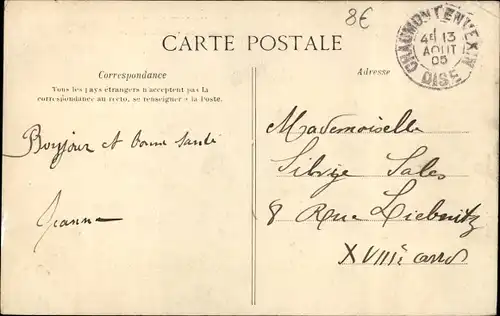 8€
CARTE POSTALE
Correspondance
Tous les pays étrangers n'acceptent pas la
correspondance au recto, se renseigner à la Poste.
Adresse
CHAUMONT-EN-VEXIN
4E 13
AOUT
05
OISE
Bonjour et bonne santé
Jeanne
Mademoiselle
Sales
8 Rue Liebnitz
XVIIIe arr